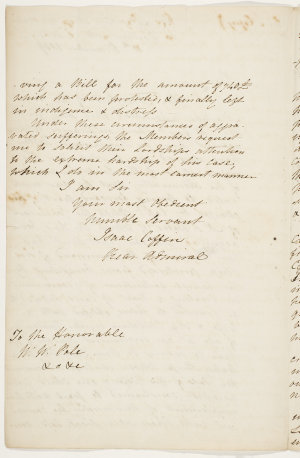 ving a Bill for the amount of
which has been protested, & finally left
in indigence & distress
Under these circumstances of aggra
vated sufferings, the Members request
me to solicit their Lordships attention
to the extreme hardship of his case,
which I do in the most earnest manner
I am Sir
Your most Obedient
Humble Servant
Isaac Coffin
Rear Admiral
To the Honorable
W. W. Pole
&c &c